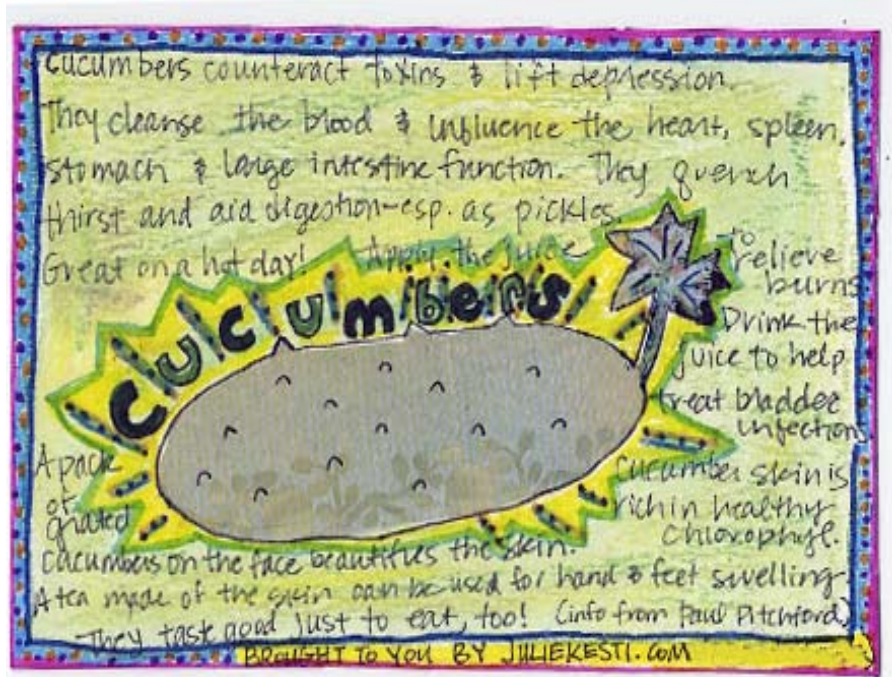 Cucumbers counteract toxins & lift depression.
They cleanse the blood & influence the heart, spleen,
stomach & large intestine function. They quench
thirst and aid digestion-esp. as pickles.
Great on a hot day! Apply the juice to
relieve
burns
Drink the
juice to help
treat bladder
infections
Cucumbers
Cucumber skin is
rich in healthy
chlorophyl.
A pack
of
grated
cucumbers on the face beautifies the skin.
A tea made of the skin can be used for hand & feet swelling.
They taste good just to eat, too! (info from Paul Pitchford)
BROUGHT TO YOU BY JULIEKESTI.COM